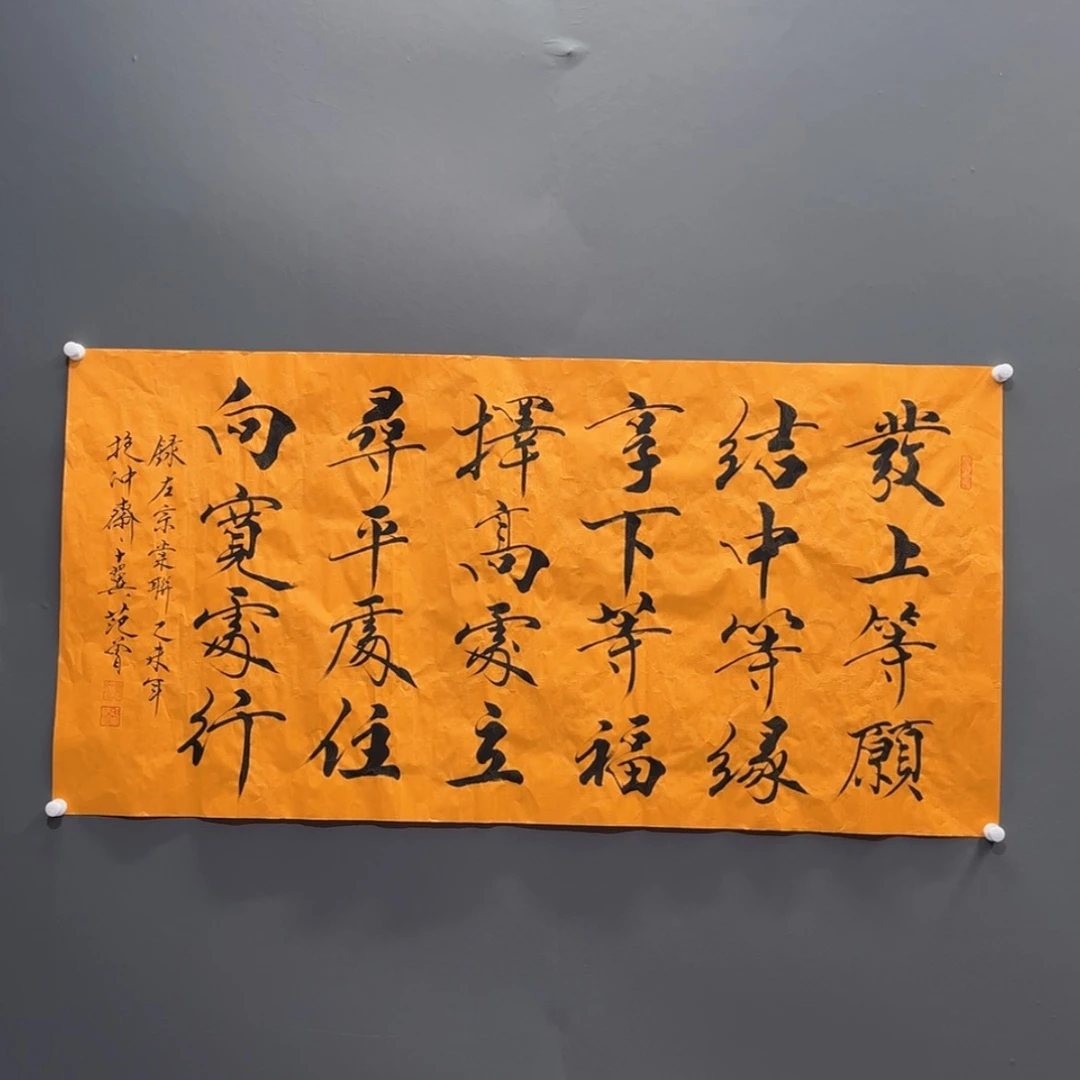 發上等願
結中等緣
享下等福
擇高處立
尋平處住
向寬處行
録左宗棠聯乙未年
挹沖齋十翼范曾